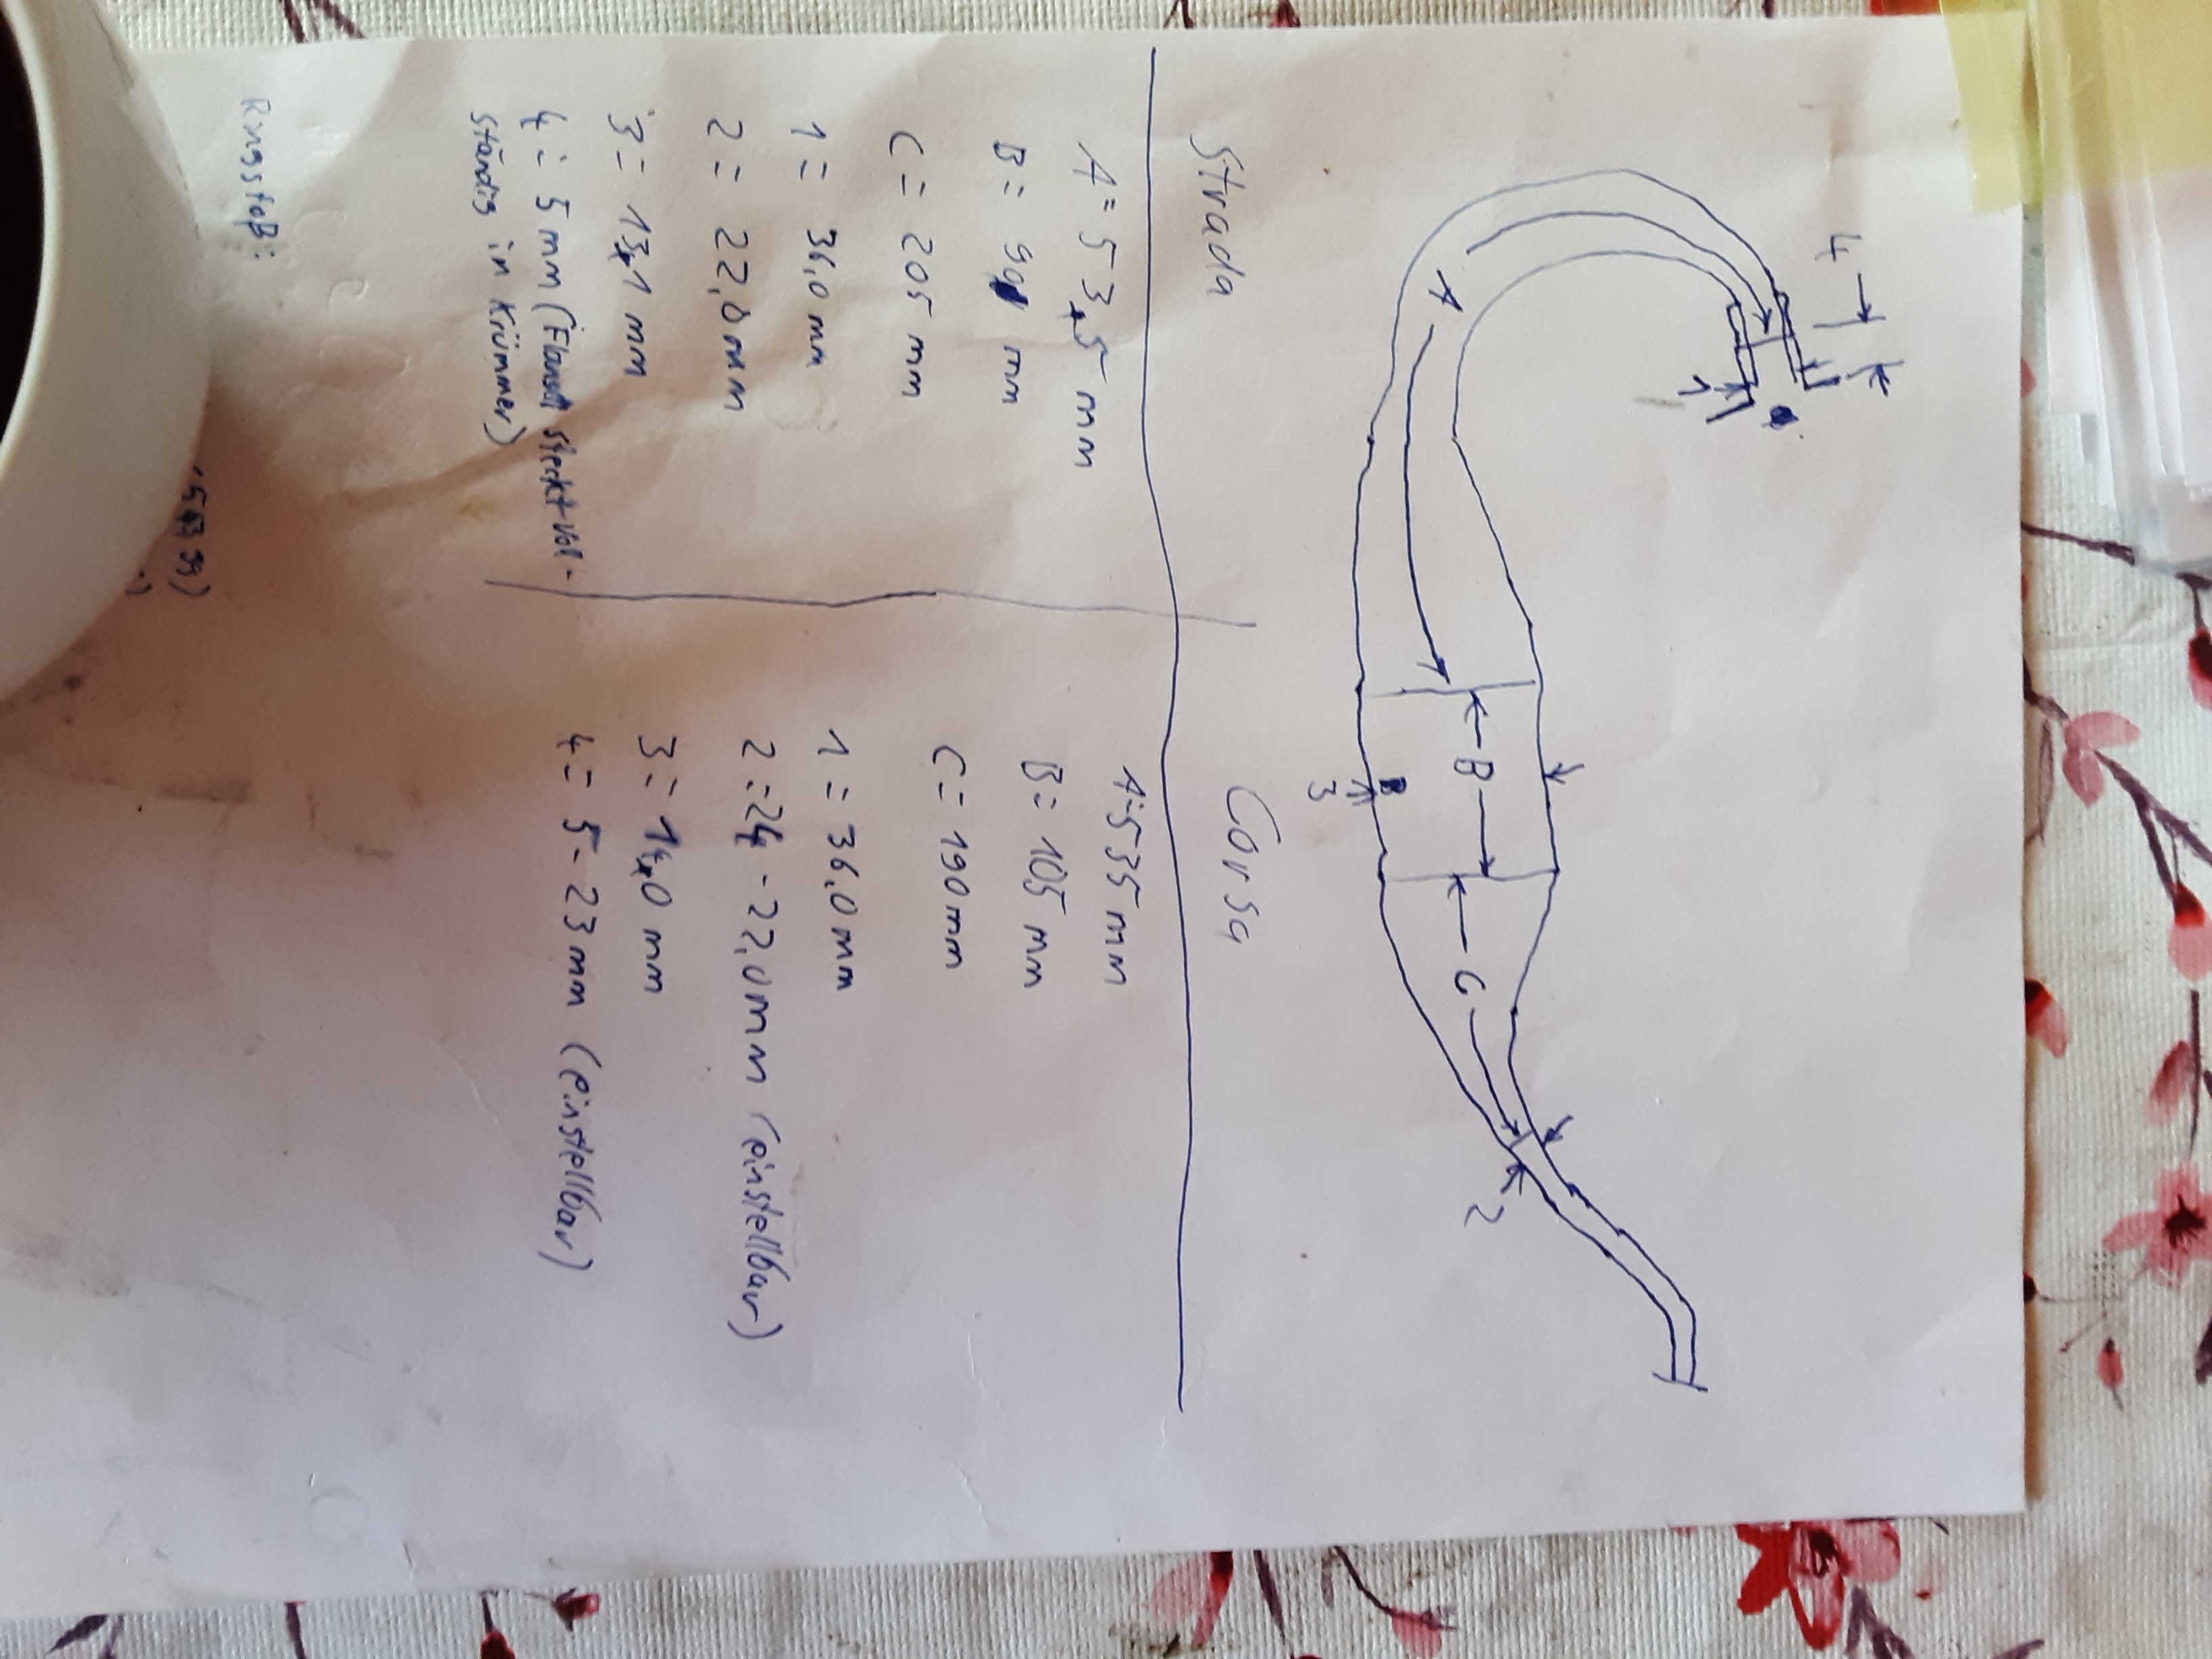 4
1
A
B
3
C
2
Strada
A = 53,5 mm
B = 99 mm
C = 205 mm
1 = 36,0 mm
2 = 22,0 mm
3 = 13,1 mm
4 = 5 mm (Flansch steckt voll-
ständig in Krümmer)
Ringstoß:
Corsa
A = 535 mm
B = 105 mm
C = 190 mm
1 = 36,0 mm
2 = 24 - 22,0 mm (einstellbar)
3 = 14,0 mm
4 = 5 - 23 mm (einstellbar)